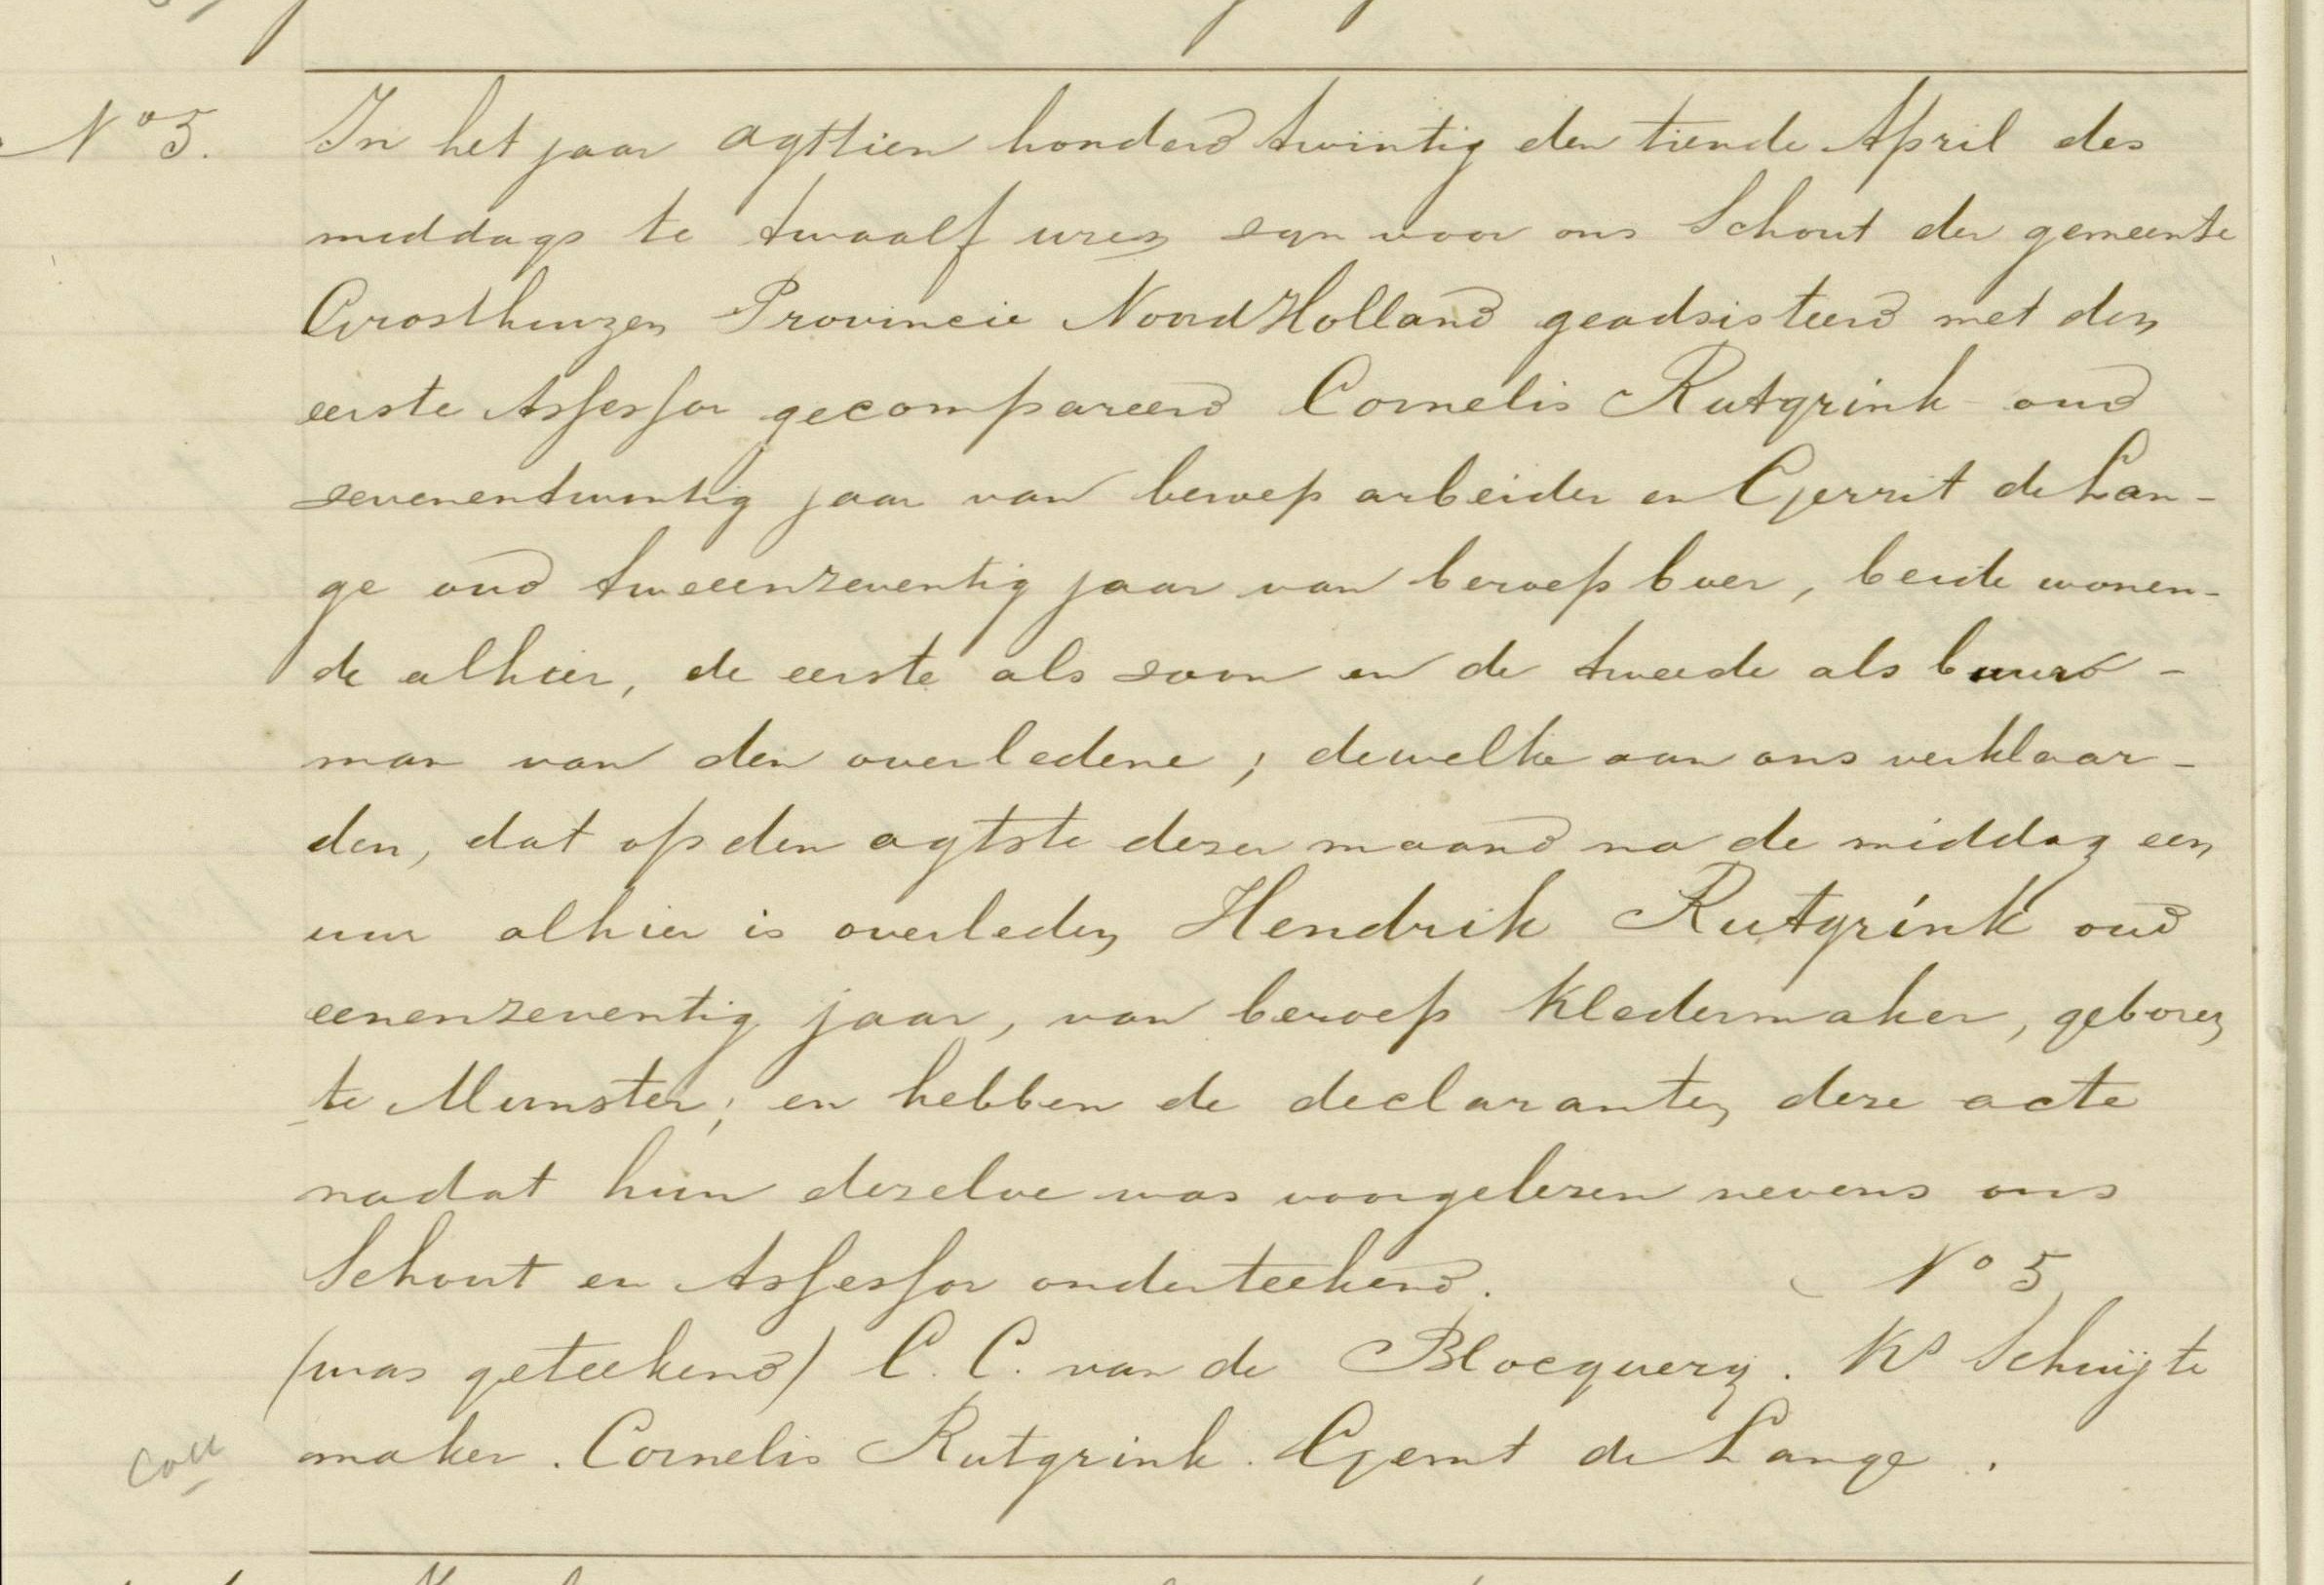 No 5. In het jaar agttien honderd twintig den tiende April des
middags te twaalf uren syn voor ons Schout der gemeente
Grosthuizen Provincie Noord Holland geadsisteerd met den
eerste Assessor gecompareerd Cornelis Rutgrink oud
sevenentwintig jaar van beroep arbeider en Gerrit de Lan-
ge oud tweeenzeventig jaar van beroep boer, beide wonen-
de alhier, de eerste als soon en de tweede als buur-
man van den overledene; dewelke aan ons verklaar-
den, dat op den agtste dezer maand na de middag een
uur alhier is overleden Hendrik Rutgrink oud
eenenzeventig jaar, van beroep kledermaker, geboren
te Munster; en hebben de declaranten deze acte
nadat hun dezelve was voorgelezen nevens ons
Schout en Assessor onderteekend. No 5
(was geteekend) C. C. van de Blocquery. Ks Schuijte
maker. Cornelis Rutgrink. Gerrit de Lange.
Coll